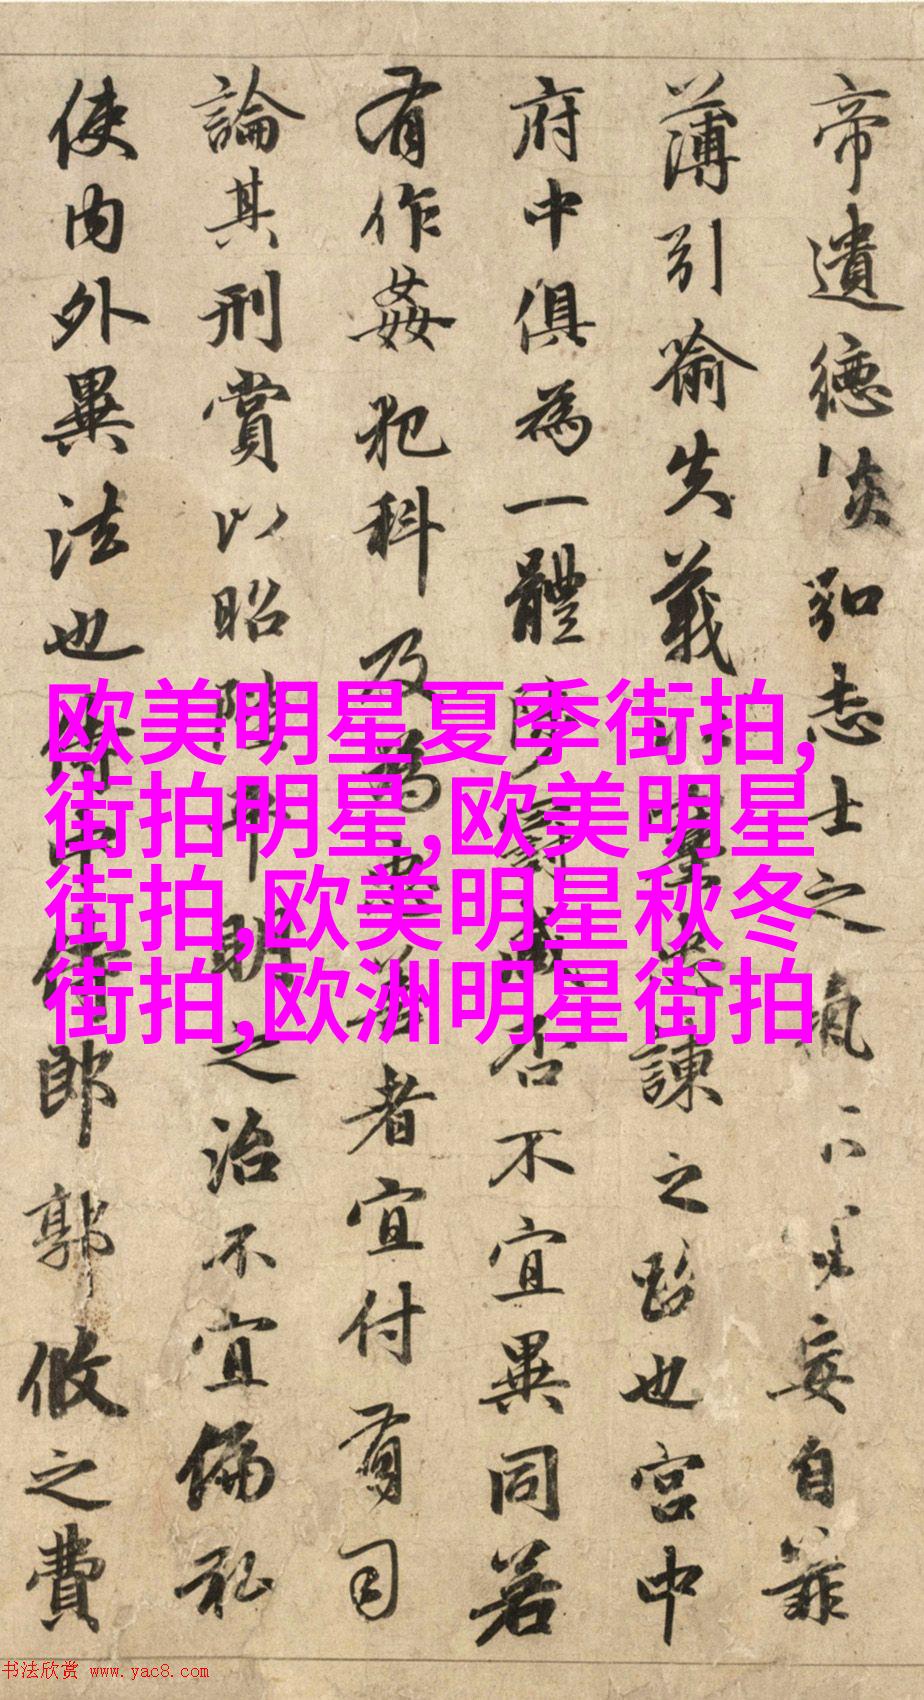 帝遺德恢弘志士之氣不妄自菲
薄引喻失義以塞忠諫之路也宮中
府中俱為一體陟罰臧否不宜異同若
有作姦犯科及為忠善者宜付有司
論其刑賞以昭陛平明之治不宜偏私
使內外異法也侍中侍郎郭攸之費
欧美明星夏季街拍,
街拍明星,欧美明星
街拍,欧美明星秋冬
街拍,欧洲明星街拍
书法欣赏 www.yac8.com